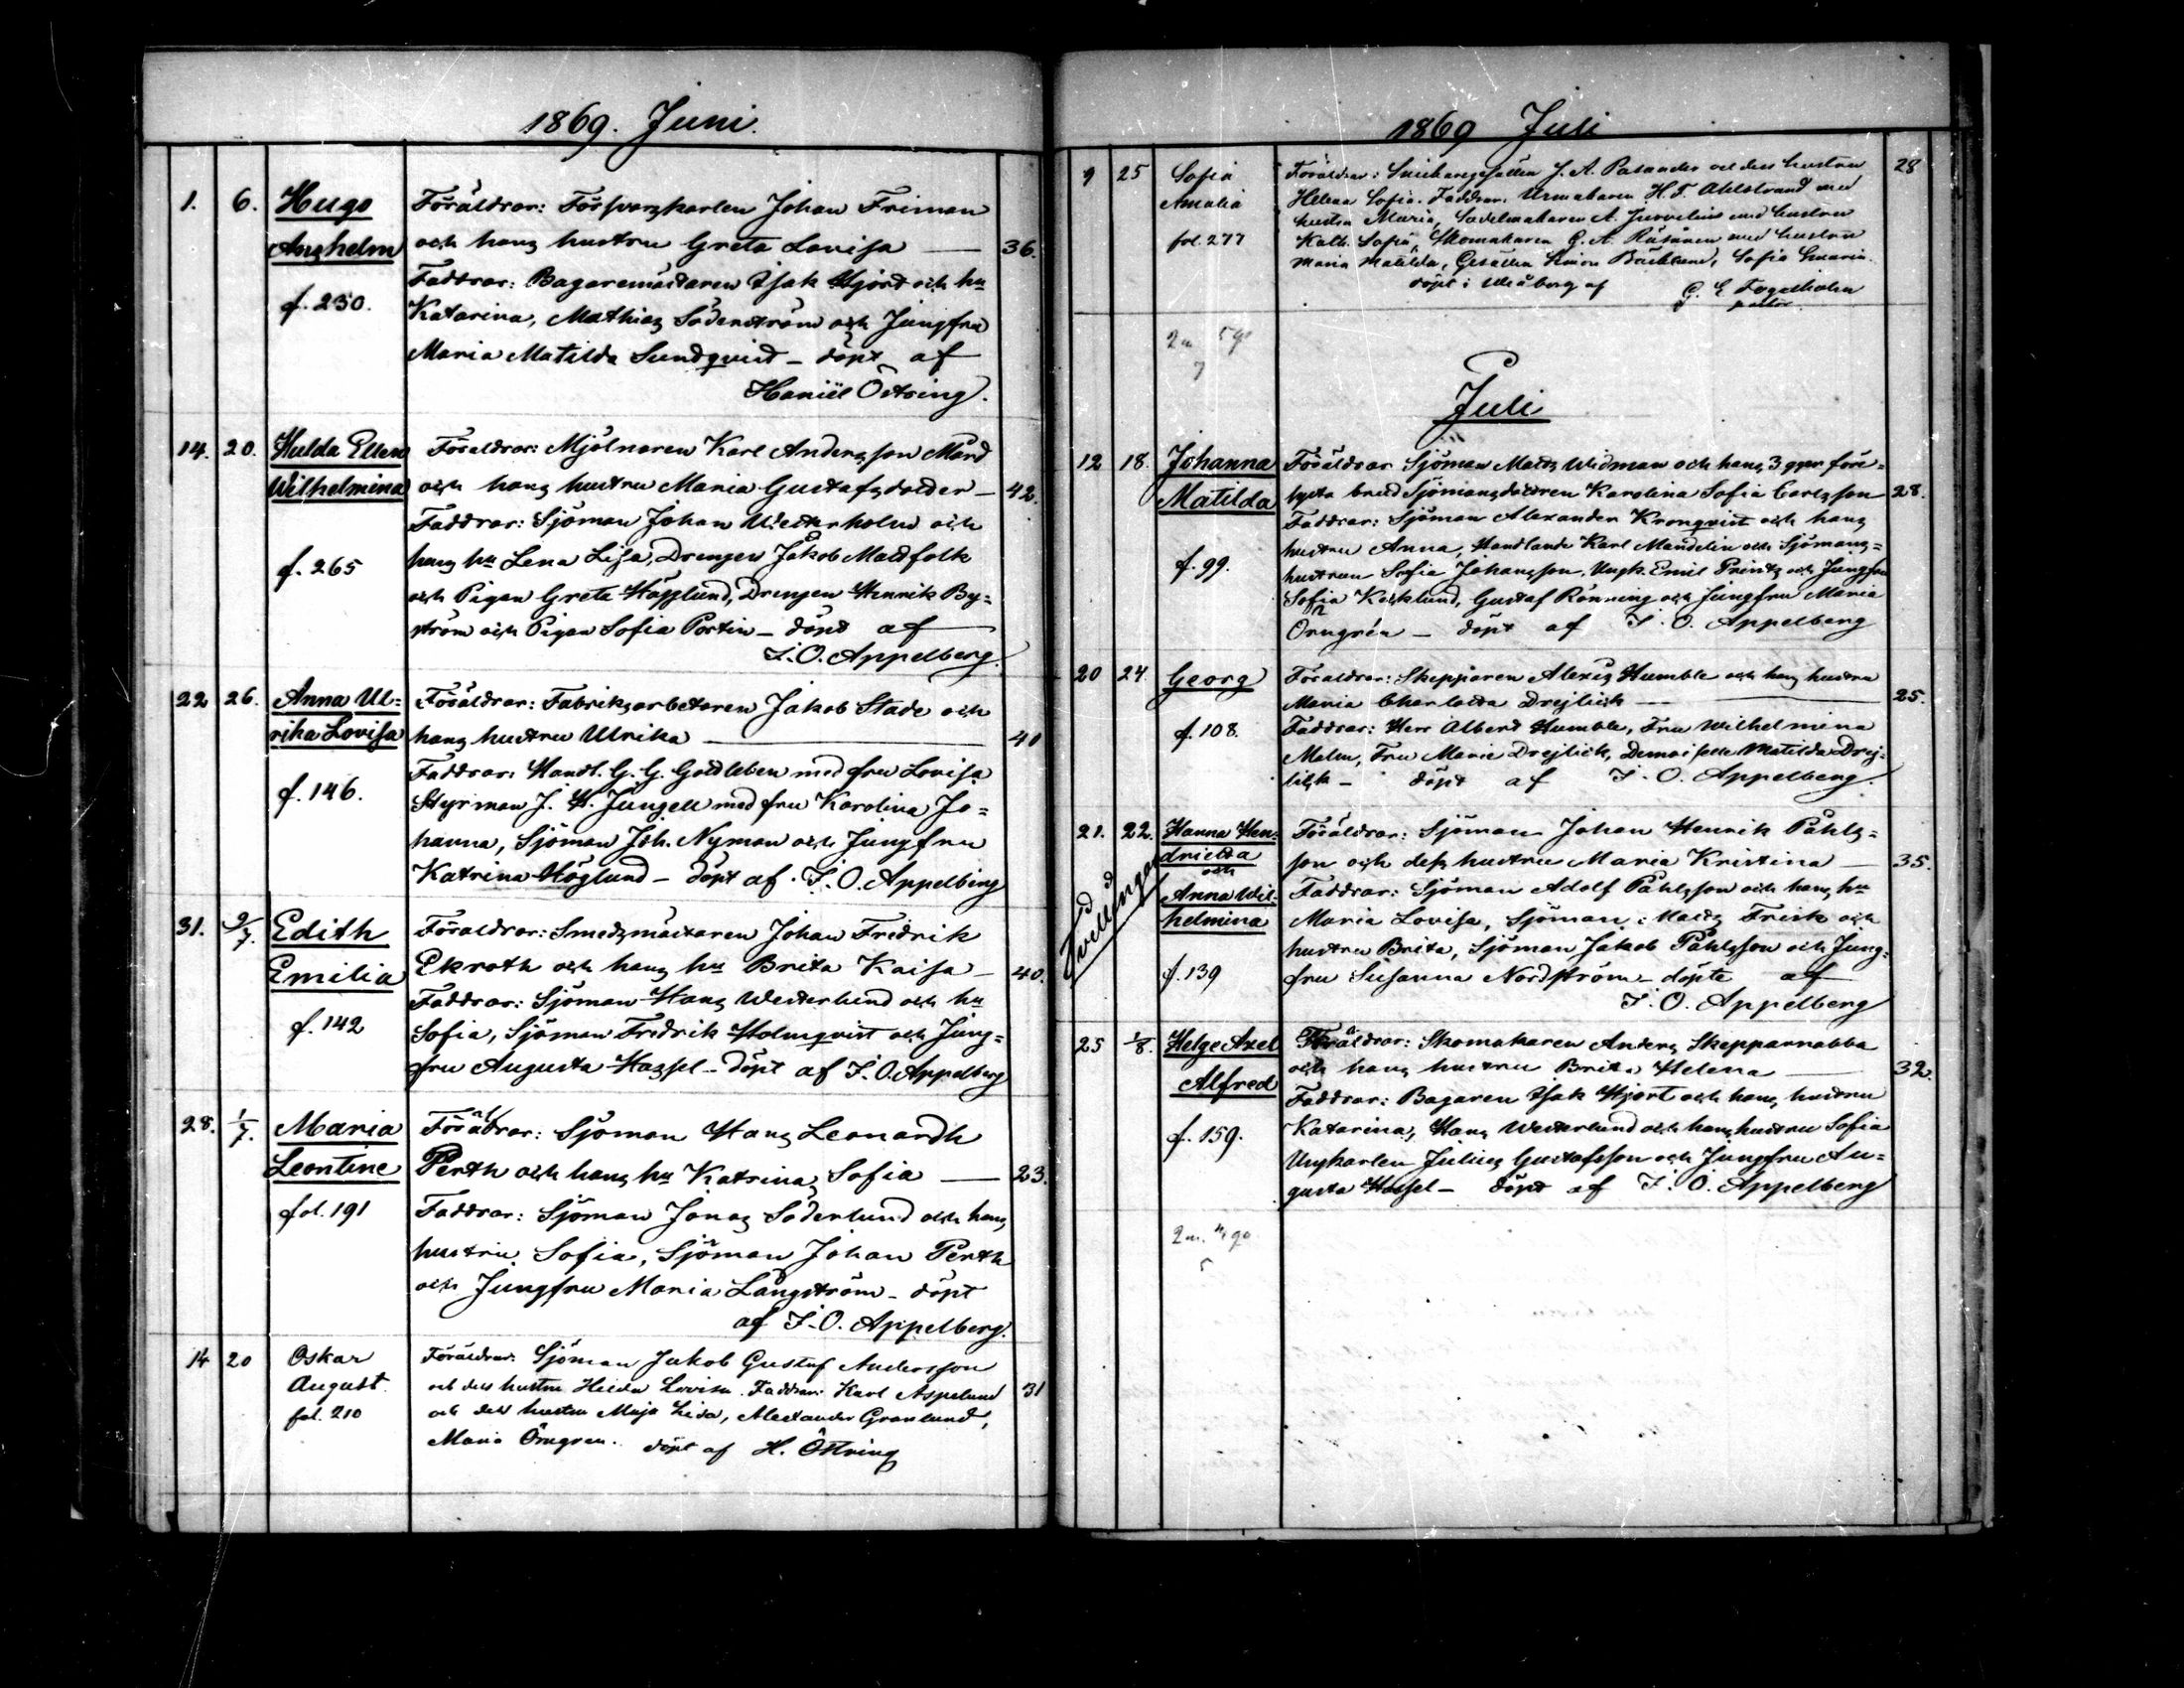 1869. Juni.
1. 6. Hugo Föräldrar: Försvarskarlen Johan Friman
Anshelm och hans hustru Greta Lovisa — 36.
Faddrar: Bagaremästaren Isak Hjort och hu
f. 230. Katarina, Mathias Söderström och Jungfru
Maria Matilda Sundqvist – döpt af
Haniél Östring.
14. 20. Hulda Ellen Föräldrar: Mjölnaren Karl Andersson Mård
Wilhelmina och hans hustru Maria Gustafsdotter – 42.
Faddrar: Sjöman Johan Westerholm och
f. 265 hans hu Lena Lisa, Drengen Jakob Madfolk
och Pigan Greta Höglund, Drengen Henrik By=
ström och Pigan Sofia Portin – döpt af
I. O. Appelberg.
22 26. Anna Ul= Föräldrar: Fabriksarbetaren Jakob Stade och
rika Lovisa hans hustru Ulrika — 40
Faddrar: Handl. G. G. Goldleben med fru Lovisa
f. 146. Styrman J. H. Jungell med fru Karolina Jo=
hanna, Sjöman Joh. Nyman och Jungfru
Katrina Höglund – döpt af I. O. Appelberg
31. 2/7. Edith Föräldrar: Smedsmästaren Johan Fredrik
Emilia Ekroth och hans hu Brita Kaisa – 40.
Faddrar: Sjöman Hans Westerlund och hu
f. 142 Sofia, Sjöman Fredrik Holmqvist och Jung=
fru Augusta Hassel – döpt af I. O. Appelberg
28. 1/7. Maria Föräldrar: Sjöman Hans Leonardh
Leontine Perth och hans hu Katrina Sofia — 23.
fol. 191 Faddrar: Sjöman Jonas Söderlund och hans
hustru Sofia, Sjöman Johan Perth
och Jungfru Maria Långström – döpt
af I. O. Appelberg.
14 20 Oskar Föräldrar: Sjöman Jakob Gustaf Andersson
August och dess hustru Hedda Lovisa. Faddrar: Karl Aspelund 31
fol. 210 och dess hustru Maja Lisa, Alexander Granlund,
Maria Örngren. döpt af H. Östring
1869 Juli
9 25 Sofia Föräldrar: Snickaregesällen J. A. Pasander och dess hustru 28
Amalia Helena Sofia. Faddrar: Urmakaren H. F. Ahlstrand med
hustru Maria, Sadelmakaren A. Juvelius med hustru
fol. 277 Kath. Sofia, Skomakaren G. A. Räsänen med hustru
Maria Matilda, Gesällen Simon Bäcklund, Sofia
döpt i Uleåborg af G. E. Fogelholm
pastor.
7
Juli
12 18. Johanna Föräldrar Sjöman Matts Widman och hans 3 ggr före=
Matilda lysta brud Sjömansdottren Karolina Sofia Carlsson 28.
Faddrar: Sjöman Alexander Kronqvist och hans
hustru Anna, Handlande Karl Mandelin och Sjömans=
f. 99. hustrun Sofia Johansson, Ungk. Emil Printz och Jungfru
Sofia Kecklund, Gustaf Rönning och Jungfru Maria
Örngrén – döpt af I. O. Appelberg
20 24. Georg Föräldrar: Skepparen Alexis Humble och hans hustru
Maria Charlotta Drejlick — 25.
f. 108. Faddrar: Herr Albert Humble, Fru Wilhelmina
Malm, Fru Marie Drejlick, Demoiselle Matilda Drej=
lick – döpt af I. O. Appelberg.
21. 22. Hanna Hen= Föräldrar: Sjöman Johan Henrik Påhls=
drietta son och dess hustru Maria Kristina — 35.
och
Anna Wil= Faddrar: Sjöman Adolf Påhlsson och hans hu
helmina Maria Lovisa, Sjöman Matts Frisk och
Tvillingar hustru Brita, Sjöman Jakob Påhlsson och Jung=
f. 139 fru Susanna Nordström – döpte af
I. O. Appelberg
25 1/8. Helge Axel Föräldrar: Skomakaren Anders Skepparnabba
Alfred och hans hustru Brita Helena — 32.
Faddrar: Bagaren Isak Hjort och hans hustru
f. 159. Katarina, Hans Westerlund och hans hustru Sofia
Ungkarlen Julius Gustafsson och Jungfru Au=
gusta Hassel – döpt af I. O. Appelberg
5